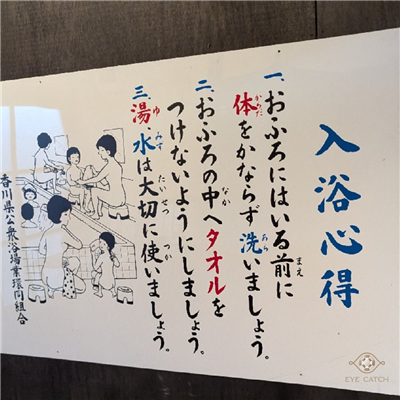 入浴心得
一、おふろにはいる前に
体をかならず洗いましょう。
二、おふろの中へタオルを
つけないようにしましょう。
三、湯、水は大切に使いましょう。
香川県公衆浴場業環同組合
EYE CATCH